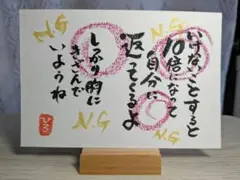 いけないことすると
10倍になって
自分に
返ってくるよ
しっかり的に
きざんで
いようね
N.G
N.G
N.G
N.G